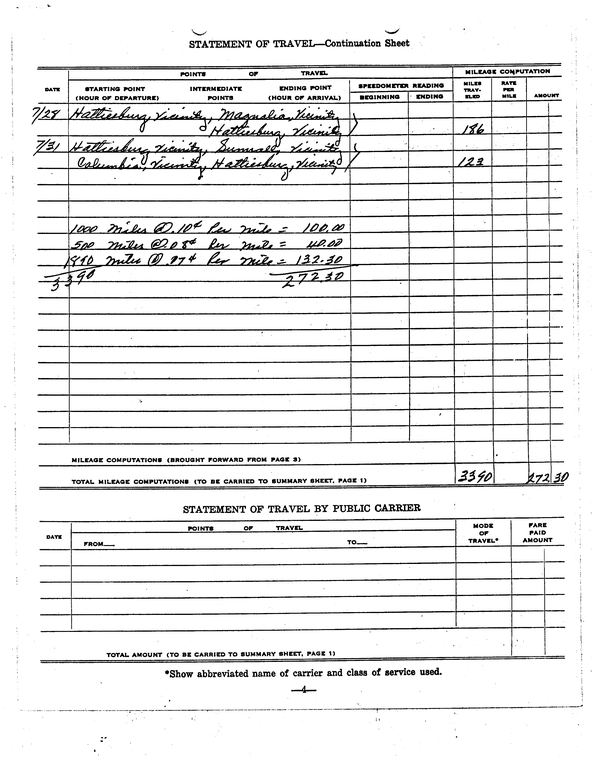 STATEMENT OF TRAVEL—Continuation Sheet
POINTS OF TRAVEL MILEAGE COMPUTATION
DATE STARTING POINT (HOUR OF DEPARTURE) INTERMEDIATE POINTS ENDING POINT (HOUR OF ARRIVAL) SPEEDOMETER READING BEGINNING ENDING MILES TRAV- ELED RATE PER MILE AMOUNT
7/28 Hattiesburg, Vicinity, Magnolia, Vicinity
Hattiesburg, Vicinity 186
7/31 Hattiesburg Vicinity, Sumrall, Vicinity
Columbia, Vicinity, Hattiesburg, Vicinity 123
1000 Miles @ .10¢ Per mile = 100.00
500 miles @ .08¢ Per Mile = 40.00
1890 miles @ .07¢ Per mile = 132.30
3390 272.30
MILEAGE COMPUTATIONS (BROUGHT FORWARD FROM PAGE 3)
TOTAL MILEAGE COMPUTATIONS (TO BE CARRIED TO SUMMARY SHEET, PAGE 1) 3390 272 30
STATEMENT OF TRAVEL BY PUBLIC CARRIER
DATE POINTS OF TRAVEL MODE OF TRAVEL* FARE PAID AMOUNT
FROM— TO—
TOTAL AMOUNT (TO BE CARRIED TO SUMMARY SHEET, PAGE 1)
*Show abbreviated name of carrier and class of service used.
—4—